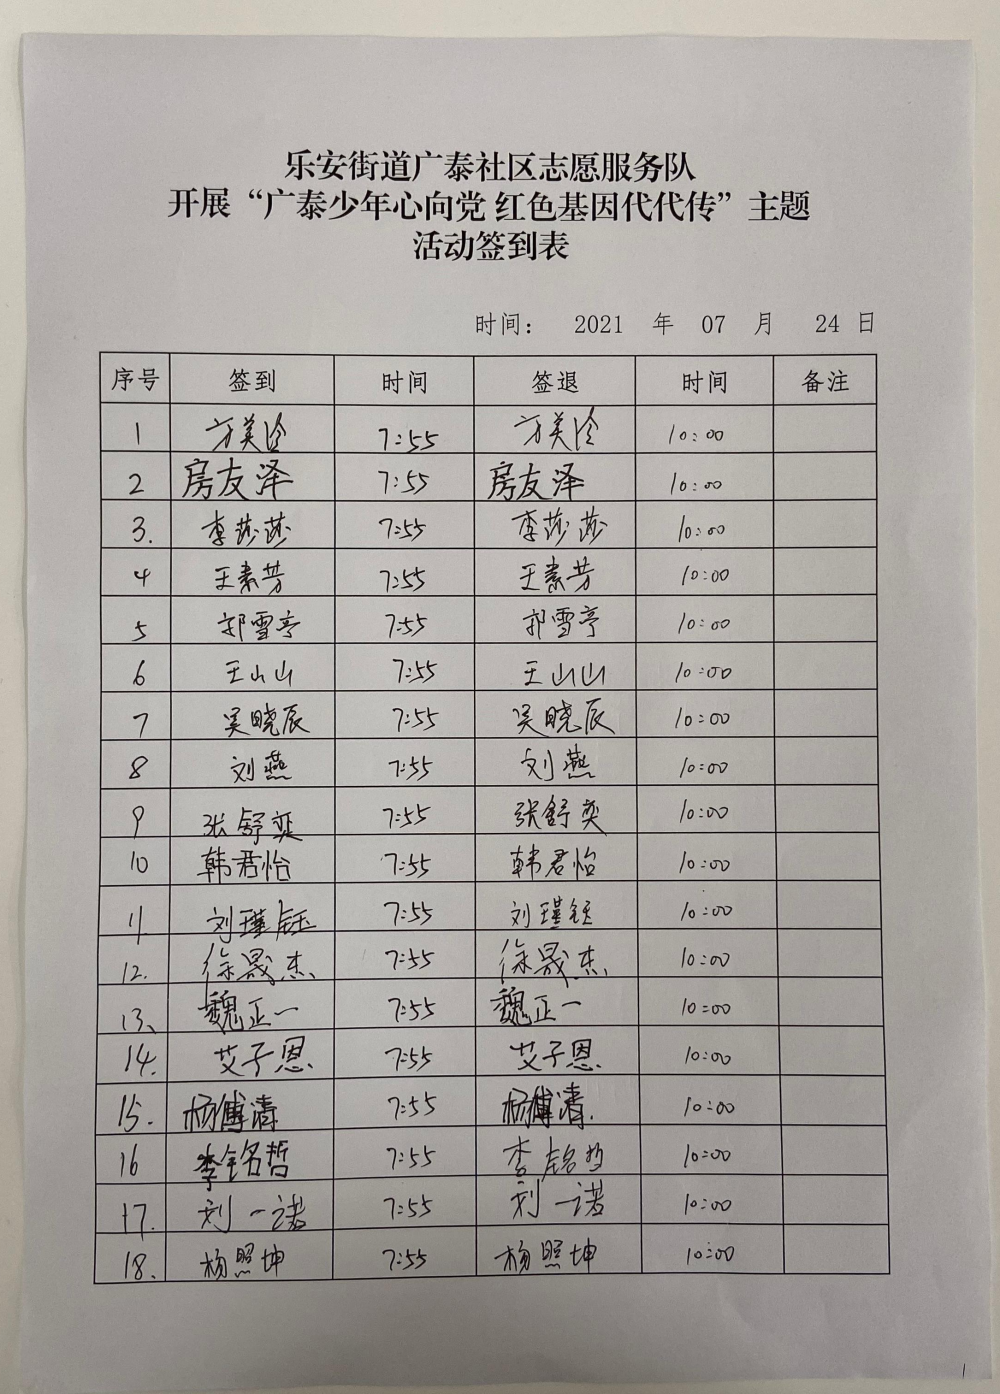 乐安街道广泰社区志愿服务队
开展“广泰少年心向党 红色基因代代传”主题
活动签到表
时间： 2021 年 07 月 24 日
序号 签到 时间 签退 时间 备注
1 方美冷 7:55 方美冷 10:00
2 房友泽 7:55 房友泽 10:00
3. 李莎莎 7:55 李莎莎 10:00
4 王素芳 7:55 王素芳 10:00
5 郭雪亭 7:55 郭雪亭 10:00
6 王山山 7:55 王山山 10:00
7 吴晓辰 7:55 吴晓辰 10:00
8 刘燕 7:55 刘燕 10:00
9 张舒奕 7:55 张舒奕 10:00
10 韩君怡 7:55 韩君怡 10:00
11. 刘瑾钰 7:55 刘瑾钰 10:00
12. 徐晟杰 7:55 徐晟杰 10:00
13、 魏正一 7:55 魏正一 10:00
14. 艾子恩 7:55 艾子恩 10:00
15. 杨傅清 7:55 杨傅清 10:00
16 李铭哲 7:55 李铭哲 10:00
17. 刘一诺 7:55 刘一诺 10:00
18. 杨照坤 7:55 杨照坤 10:00
1